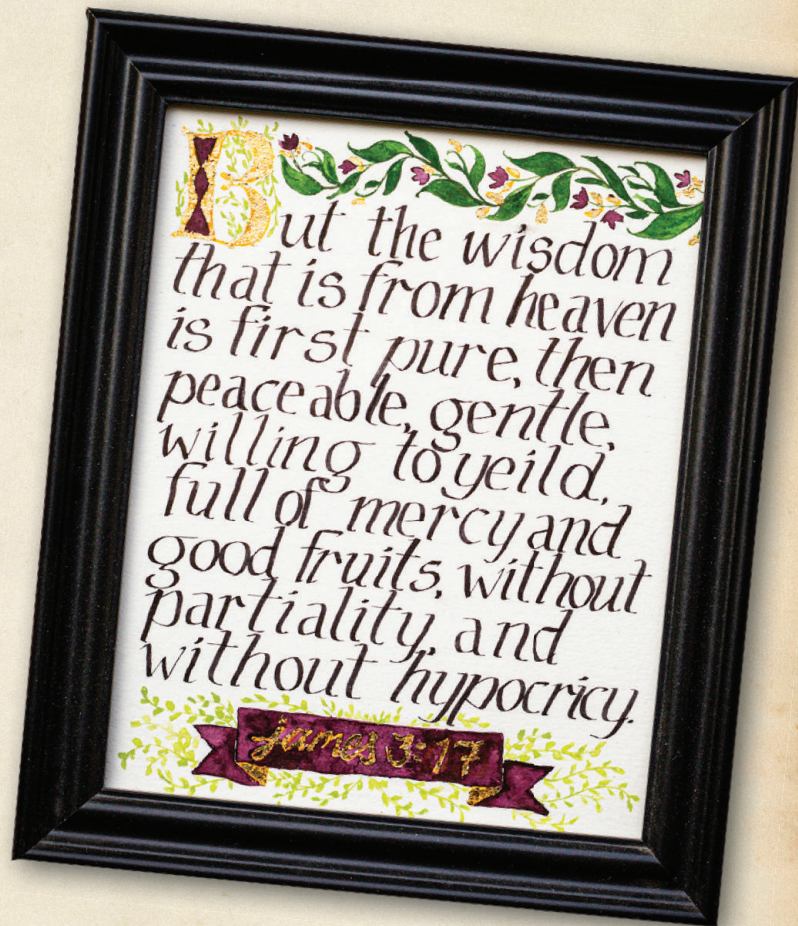 But the wisdom
that is from heaven
is first pure, then
peaceable, gentle,
willing to yeild,
full of mercy and
good fruits, without
partiality, and
without hypocricy.
james 3:17